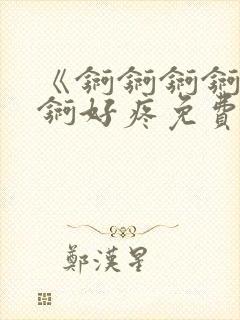 《锕锕锕锕
锕好疼免費
鄭漢星